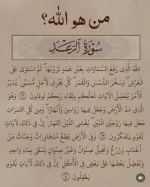 من هو الله؟
سُورَةُ الرَّعْدِ
اللَّهُ الَّذِي رَفَعَ السَّمَاوَاتِ بِغَيْرِ عَمَدٍ تَرَوْنَهَا ۖ ثُمَّ اسْتَوَىٰ عَلَى
الْعَرْشِ ۖ وَسَخَّرَ الشَّمْسَ وَالْقَمَرَ ۖ كُلٌّ يَجْرِي لِأَجَلٍ مُسَمًّى ۚ يُدَبِّرُ
الْأَمْرَ يُفَصِّلُ الْآيَاتِ لَعَلَّكُمْ بِلِقَاءِ رَبِّكُمْ تُوقِنُونَ ۝ وَهُوَ
الَّذِي مَدَّ الْأَرْضَ وَجَعَلَ فِيهَا رَوَاسِيَ وَأَنْهَارًا ۖ وَمِنْ كُلِّ الثَّمَرَاتِ
جَعَلَ فِيهَا زَوْجَيْنِ اثْنَيْنِ ۖ يُغْشِي اللَّيْلَ النَّهَارَ ۚ إِنَّ فِي ذَٰلِكَ لَآيَاتٍ
لِقَوْمٍ يَتَفَكَّرُونَ ۝ وَفِي الْأَرْضِ قِطَعٌ مُتَجَاوِرَاتٌ وَجَنَّاتٌ مِنْ
أَعْنَابٍ وَزَرْعٌ وَنَخِيلٌ صِنْوَانٌ وَغَيْرُ صِنْوَانٍ يُسْقَىٰ بِمَاءٍ وَاحِدٍ
وَنُفَضِّلُ بَعْضَهَا عَلَىٰ بَعْضٍ فِي الْأُكُلِ ۚ إِنَّ فِي ذَٰلِكَ لَآيَاتٍ لِقَوْمٍ
يَعْقِلُونَ ۝